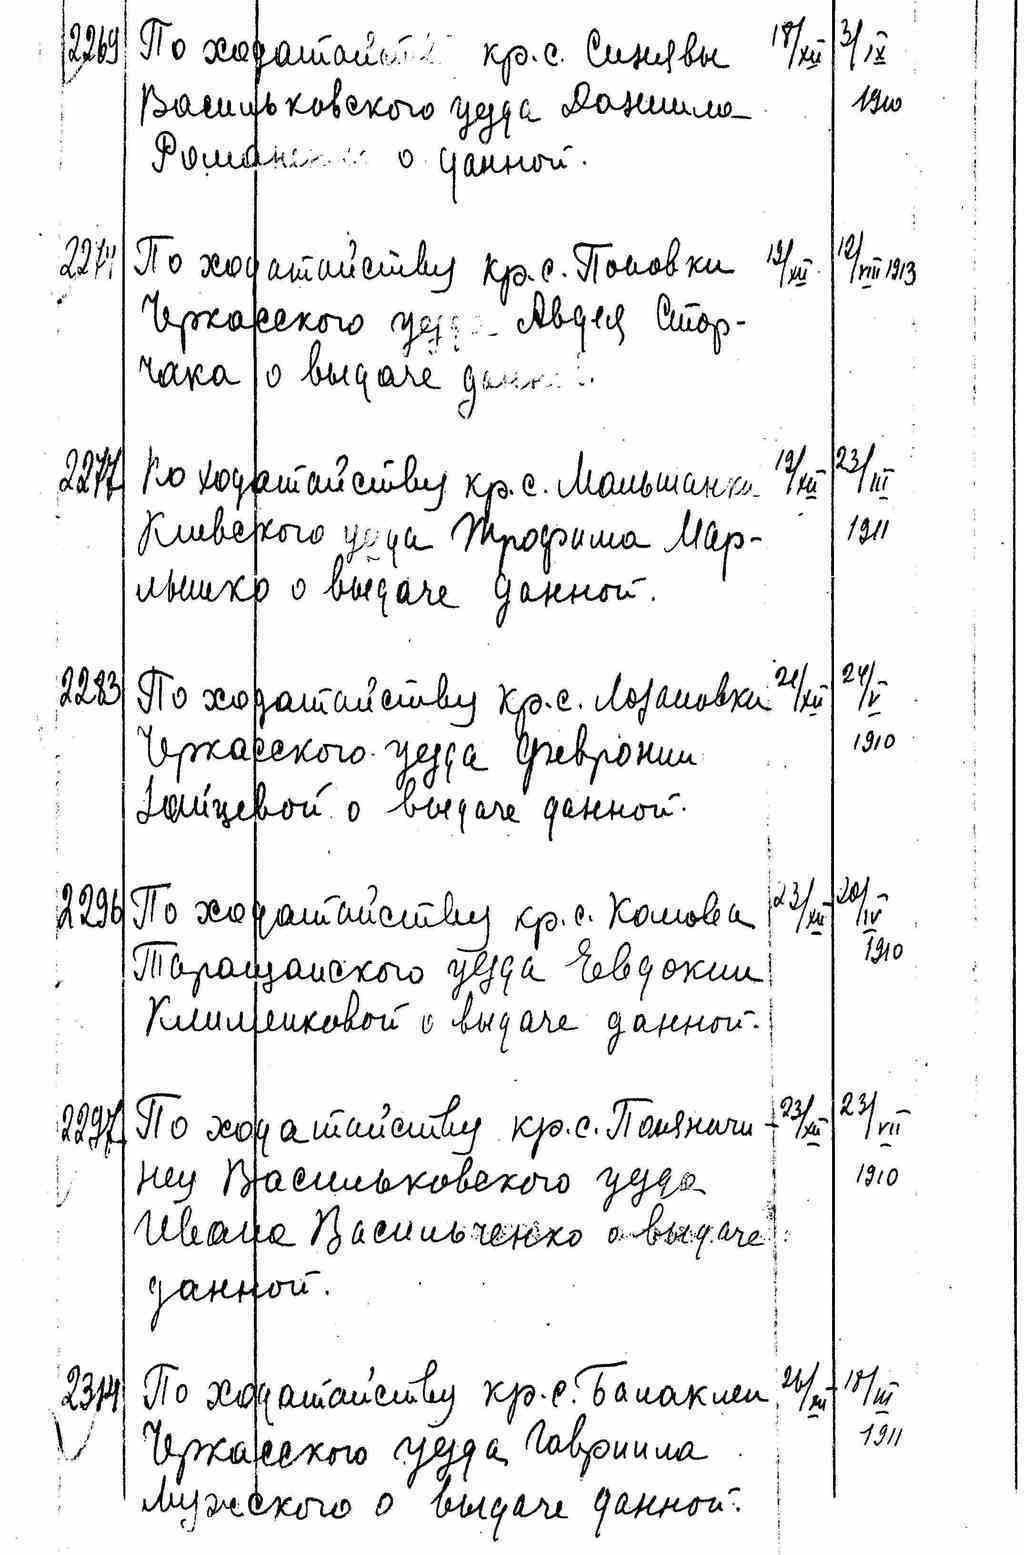 2269 По ходатайст кр. с. Синявы 18/XII 3/IX
Васильковского уезда Даниила 1910
Романенко о данной.
227 По ходатайству кр. с. Поповки 19/XII 12/VIII 1913
Черкасского уезда Авдея Стор-
чака о выдаче данной.
2277 По ходатайству кр. с. Мотышанки 19/XII 23/III
Киевского уезда Трофима Мар- 1911
о выдаче данной.
2283 По ходатайству кр. с. Лозановки 21/XII 24/V
Черкасского уезда Февронии 1910
Зайцевой о выдаче данной.
2296 По ходатайству кр. с. 23/XII 20/IV
Таращанского уезда Евдокии 1910
Клименковой о выдаче данной.
2297 По ходатайству кр. с. Поляничи- 23/XII 23/VII
нец Васильковского уезда 1910
Ивана Васильченко о выдаче
данной.
2314 По ходатайству кр. с. Балаклеи 26/XII 18/III
Черкасского уезда Гавриила 1911
Мужского о выдаче данной.